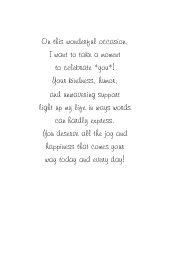 On this wonderful occasion,
I want to take a moment
to celebrate *you*!
Your kindness, humor,
and unwavering support
light up my life in ways words
can hardly express.
You deserve all the joy and
happiness that comes your
way today and every day!